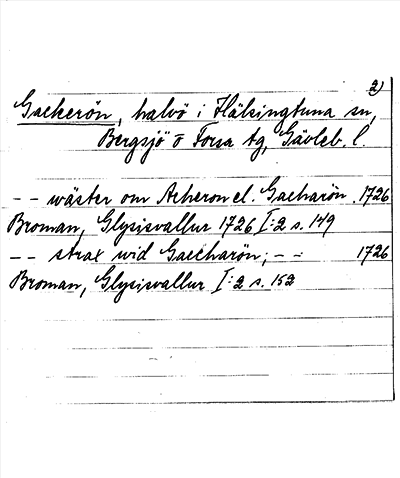 2)
Gackerön, halvö i Hälsingtuna sn,
Bergsjö o Forsa tg, Gävleb. l.
-- wäster om Acheron el. Gacharön, 1726
Broman, Glysisvallur 1726 I:2 s. 149
-- strax wid Gaecharön; -- 1726
Broman, Glysisvallur I:2 s. 152